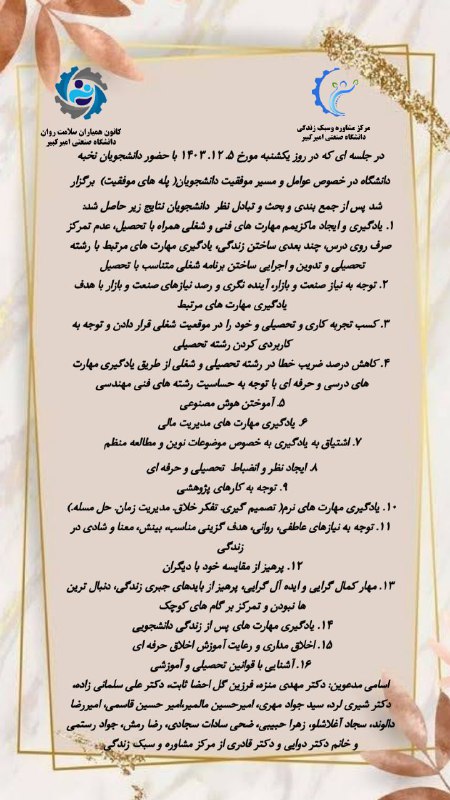 مرکز مشاوره وسبک زندگی
دانشگاه صنعتی امیرکبیر
کانون همیاران سلامت روان
دانشگاه صنعتی امیرکبیر
در جلسه ای که در روز یکشنبه مورخ ۱۴۰۳.۱۲.۵ با حضور دانشجویان نخبه
دانشگاه در خصوص عوامل و مسیر موفقیت دانشجویان( پله های موفقیت) برگزار
شد پس از جمع بندی و بحث و تبادل نظر دانشجویان نتایج زیر حاصل شد:
۱. یادگیری و ایجاد ماکزیمم مهارت های فنی و شغلی همراه با تحصیل، عدم تمرکز
صرف روی درس، چند بعدی ساختن زندگی، یادگیری مهارت های مرتبط با رشته
تحصیلی و تدوین و اجرایی ساختن برنامه شغلی متناسب با تحصیل
۲. توجه به نیاز صنعت و بازار، آینده نگری و رصد نیازهای صنعت و بازار با هدف
یادگیری مهارت های مرتبط
۳. کسب تجربه کاری و تحصیلی و خود را در موقعیت شغلی قرار دادن و توجه به
کاربردی کردن رشته تحصیلی
۴. کاهش درصد ضریب خطا در رشته تحصیلی و شغلی از طریق یادگیری مهارت
های درسی و حرفه ای با توجه به حساسیت رشته های فنی مهندسی
۵. آموختن هوش مصنوعی
۶. یادگیری مهارت های مدیریت مالی
۷. اشتیاق به یادگیری به خصوص موضوعات نوین و مطالعه منظم
۸. ایجاد نظر و انضباط تحصیلی و حرفه ای
۹. توجه به کارهای پژوهشی
۱۰. یادگیری مهارت های نرم( تصمیم گیری. تفکر خلاق. مدیریت زمان. حل مسله.)
۱۱. توجه به نیازهای عاطفی، روانی، هدف گزینی مناسب، بینش، معنا و شادی در
زندگی
۱۲. پرهیز از مقایسه خود با دیگران
۱۳. مهار کمال گرایی و ایده آل گرایی، پرهیز از بایدهای جبری زندگی، دنبال ترین
ها نبودن و تمرکز بر گام های کوچک
۱۴. یادگیری مهارت های پس از زندگی دانشجویی
۱۵. اخلاق مداری و رعایت آموزش اخلاق حرفه ای
۱۶. آشنایی با قوانین تحصیلی و آموزشی
اسامی مدعوین: دکتر مهدی منزه، فرزین گل احضا ثابت، دکتر علی سلمانی زاده،
دکتر شیری لرد، سید جواد مهری، امیرحسین مالمیر،امیر حسین قاسمی، امیررضا
دالوند، سجاد آغلاشلو، زهرا حبیبی، ضحی سادات سجادی، رضا رمش، جواد رستمی
و خانم دکتر دوایی و دکتر قادری از مرکز مشاوره و سبک زندگی